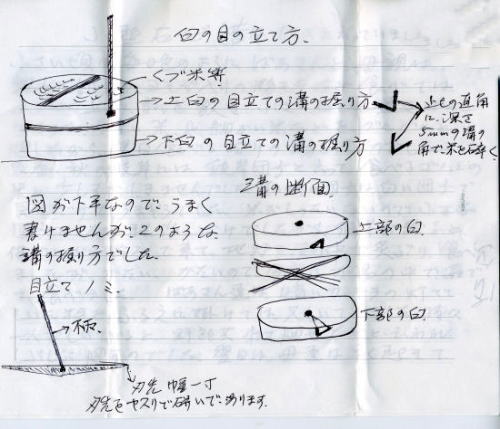 臼の目の立て方.
くづ米等
上臼の目立ての溝の掘り方
下臼の目立ての溝の掘り方
この直角
に、深さ
5mmの溝の
角で米を砕く.
溝の断面.
図が下手なので、うまく
書けませんが、このような
溝の掘り方でした.
上部の臼.
目立てノミ.
柄.
下部の臼.
刃先 幅一寸
刃先をヤスリで研いであります.